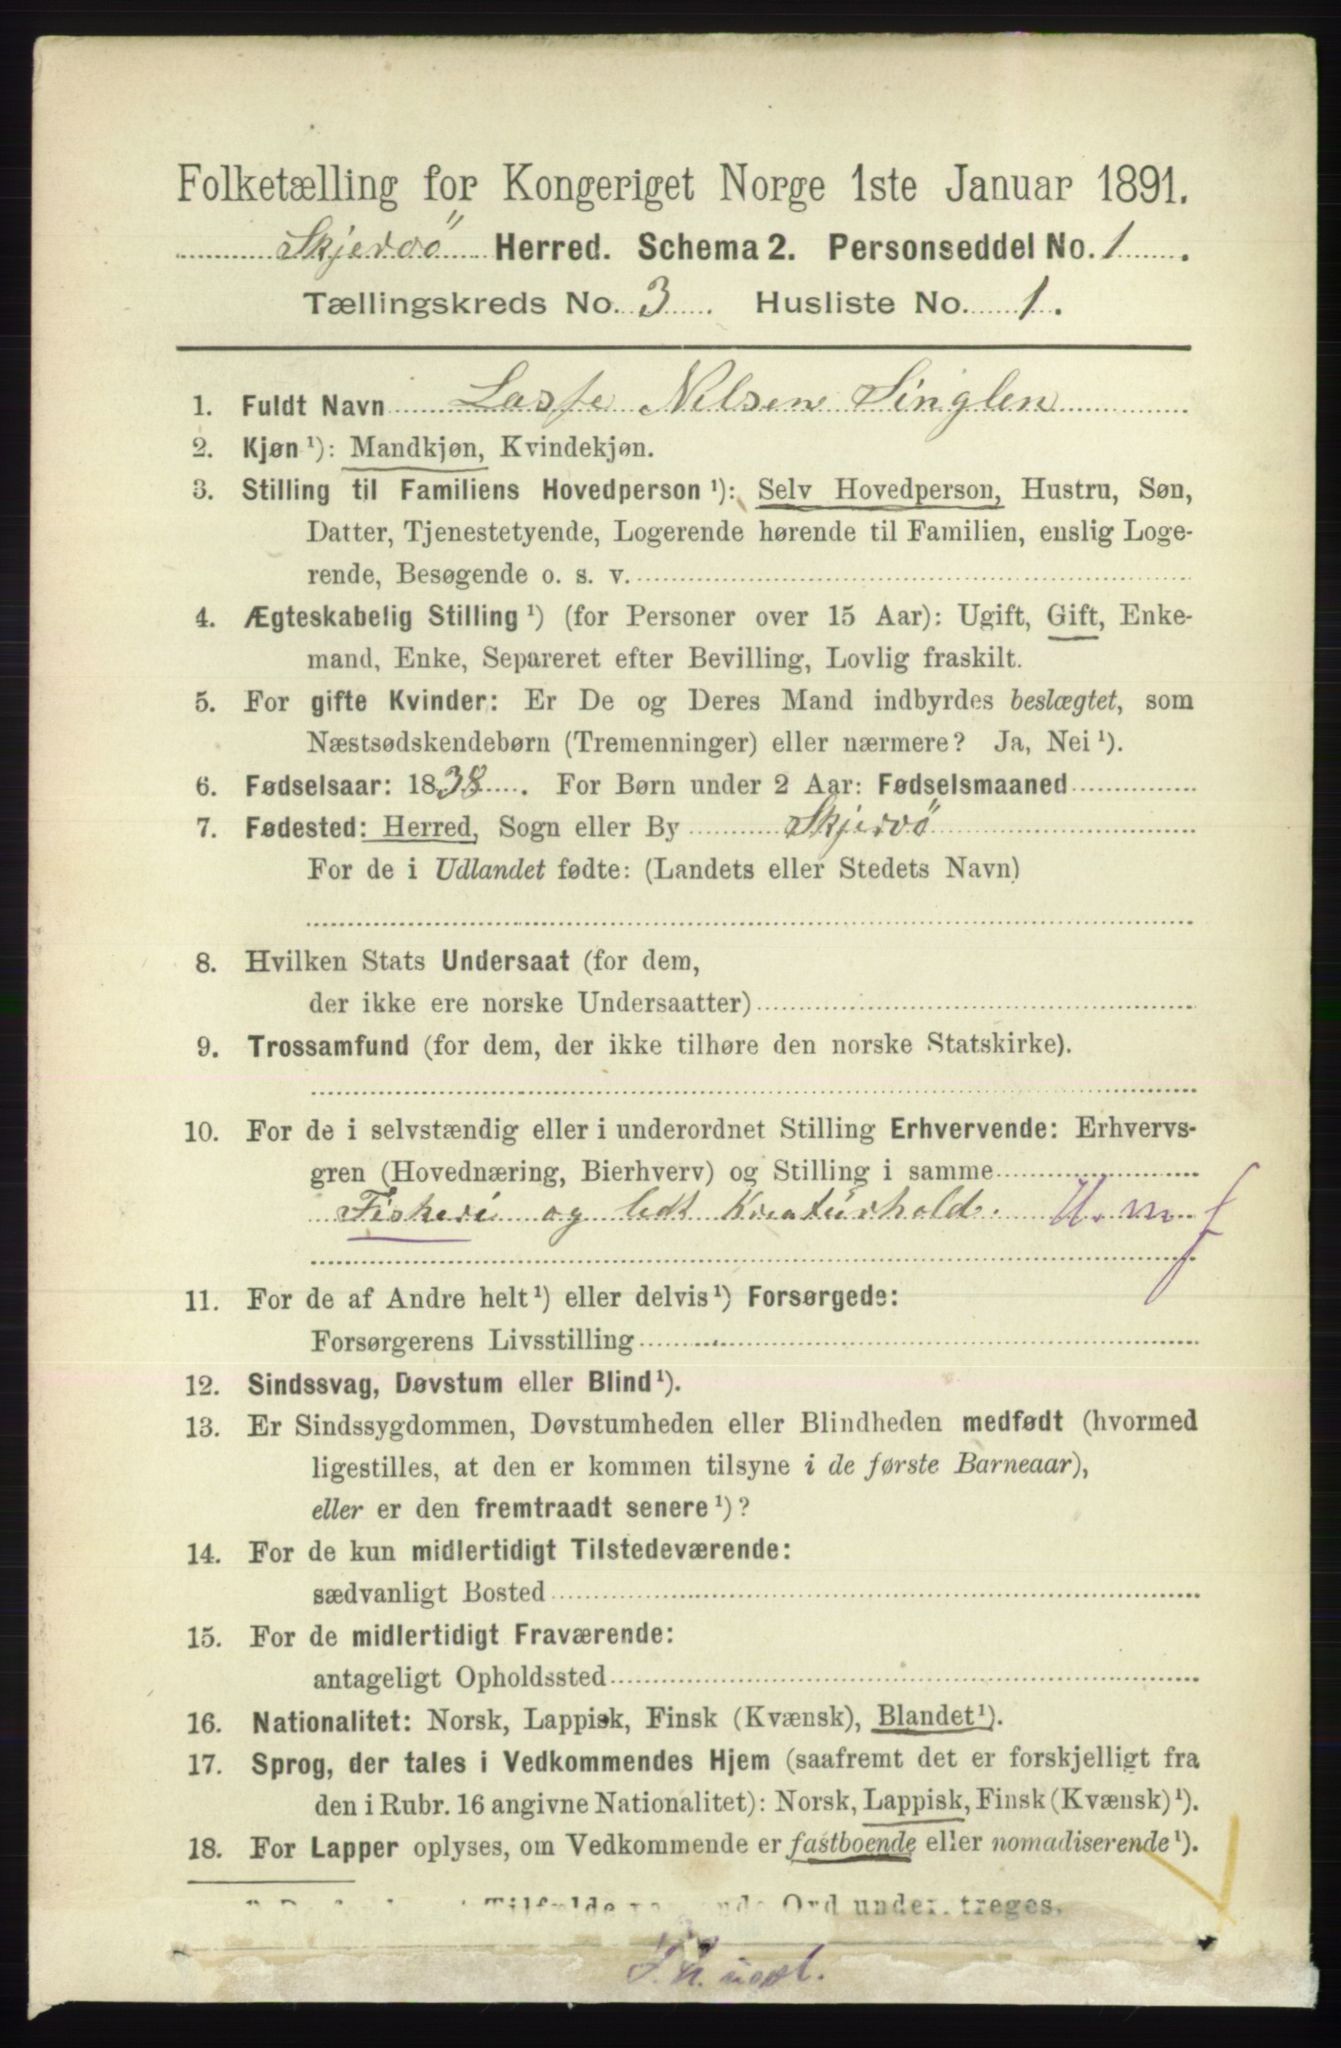 Folketælling for Kongeriget Norge 1ste Januar 1891.
Skjervö Herred. Schema 2. Personseddel No. 1.
Tællingskreds No. 3. Husliste No. 1.
1. Fuldt Navn Lasse Nilsen Singlen
2. Kjøn¹): Mandkjøn, Kvindekjøn.
3. Stilling til Familiens Hovedperson¹): Selv Hovedperson, Hustru, Søn,
Datter, Tjenestetyende, Logerende hørende til Familien, enslig Loge-
rende, Besøgende o. s. v.
4. Ægteskabelig Stilling¹) (for Personer over 15 Aar): Ugift, Gift, Enke-
mand, Enke, Separeret efter Bevilling, Lovlig fraskilt.
5. For gifte Kvinder: Er De og Deres Mand indbyrdes beslægtet, som
Næstsødskendebørn (Tremenninger) eller nærmere? Ja, Nei¹).
6. Fødselsaar: 1838. For Børn under 2 Aar: Fødselsmaaned
7. Fødested: Herred, Sogn eller By Skjervö
For de i Udlandet fødte: (Landets eller Stedets Navn)
8. Hvilken Stats Undersaat (for dem,
der ikke ere norske Undersaatter)
9. Trossamfund (for dem, der ikke tilhøre den norske Statskirke).
10. For de i selvstændig eller i underordnet Stilling Erhvervende: Erhvervs-
gren (Hovednæring, Bierhverv) og Stilling i samme
Fiskeri og lidt Kreaturhold.
11. For de af Andre helt¹) eller delvis¹) Forsørgede:
Forsørgerens Livsstilling
12. Sindssvag, Døvstum eller Blind¹).
13. Er Sindssygdommen, Døvstumheden eller Blindheden medfødt (hvormed
ligestilles, at den er kommen tilsyne i de første Barneaar),
eller er den fremtraadt senere¹)?
14. For de kun midlertidigt Tilstedeværende:
sædvanligt Bosted
15. For de midlertidigt Fraværende:
antageligt Opholdssted
16. Nationalitet: Norsk, Lappisk, Finsk (Kvænsk), Blandet¹).
17. Sprog, der tales i Vedkommendes Hjem (saafremt det er forskjelligt fra
den i Rubr. 16 angivne Nationalitet): Norsk, Lappisk, Finsk (Kvænsk)¹).
18. For Lapper oplyses, om Vedkommende er fastboende eller nomadiserende¹).
Tilfælde Ord understreges.